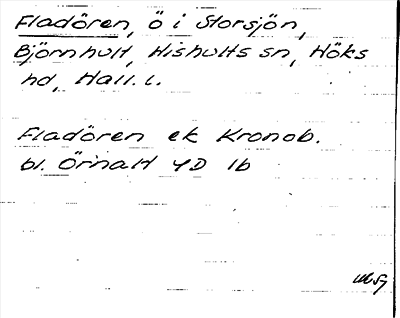 Fladören, ö i Storsjön,
Björnhult, Hishults sn, Höks
hd, Hall. l.
Fladören ek Kronob.
bl. Örnalt 4D 1b